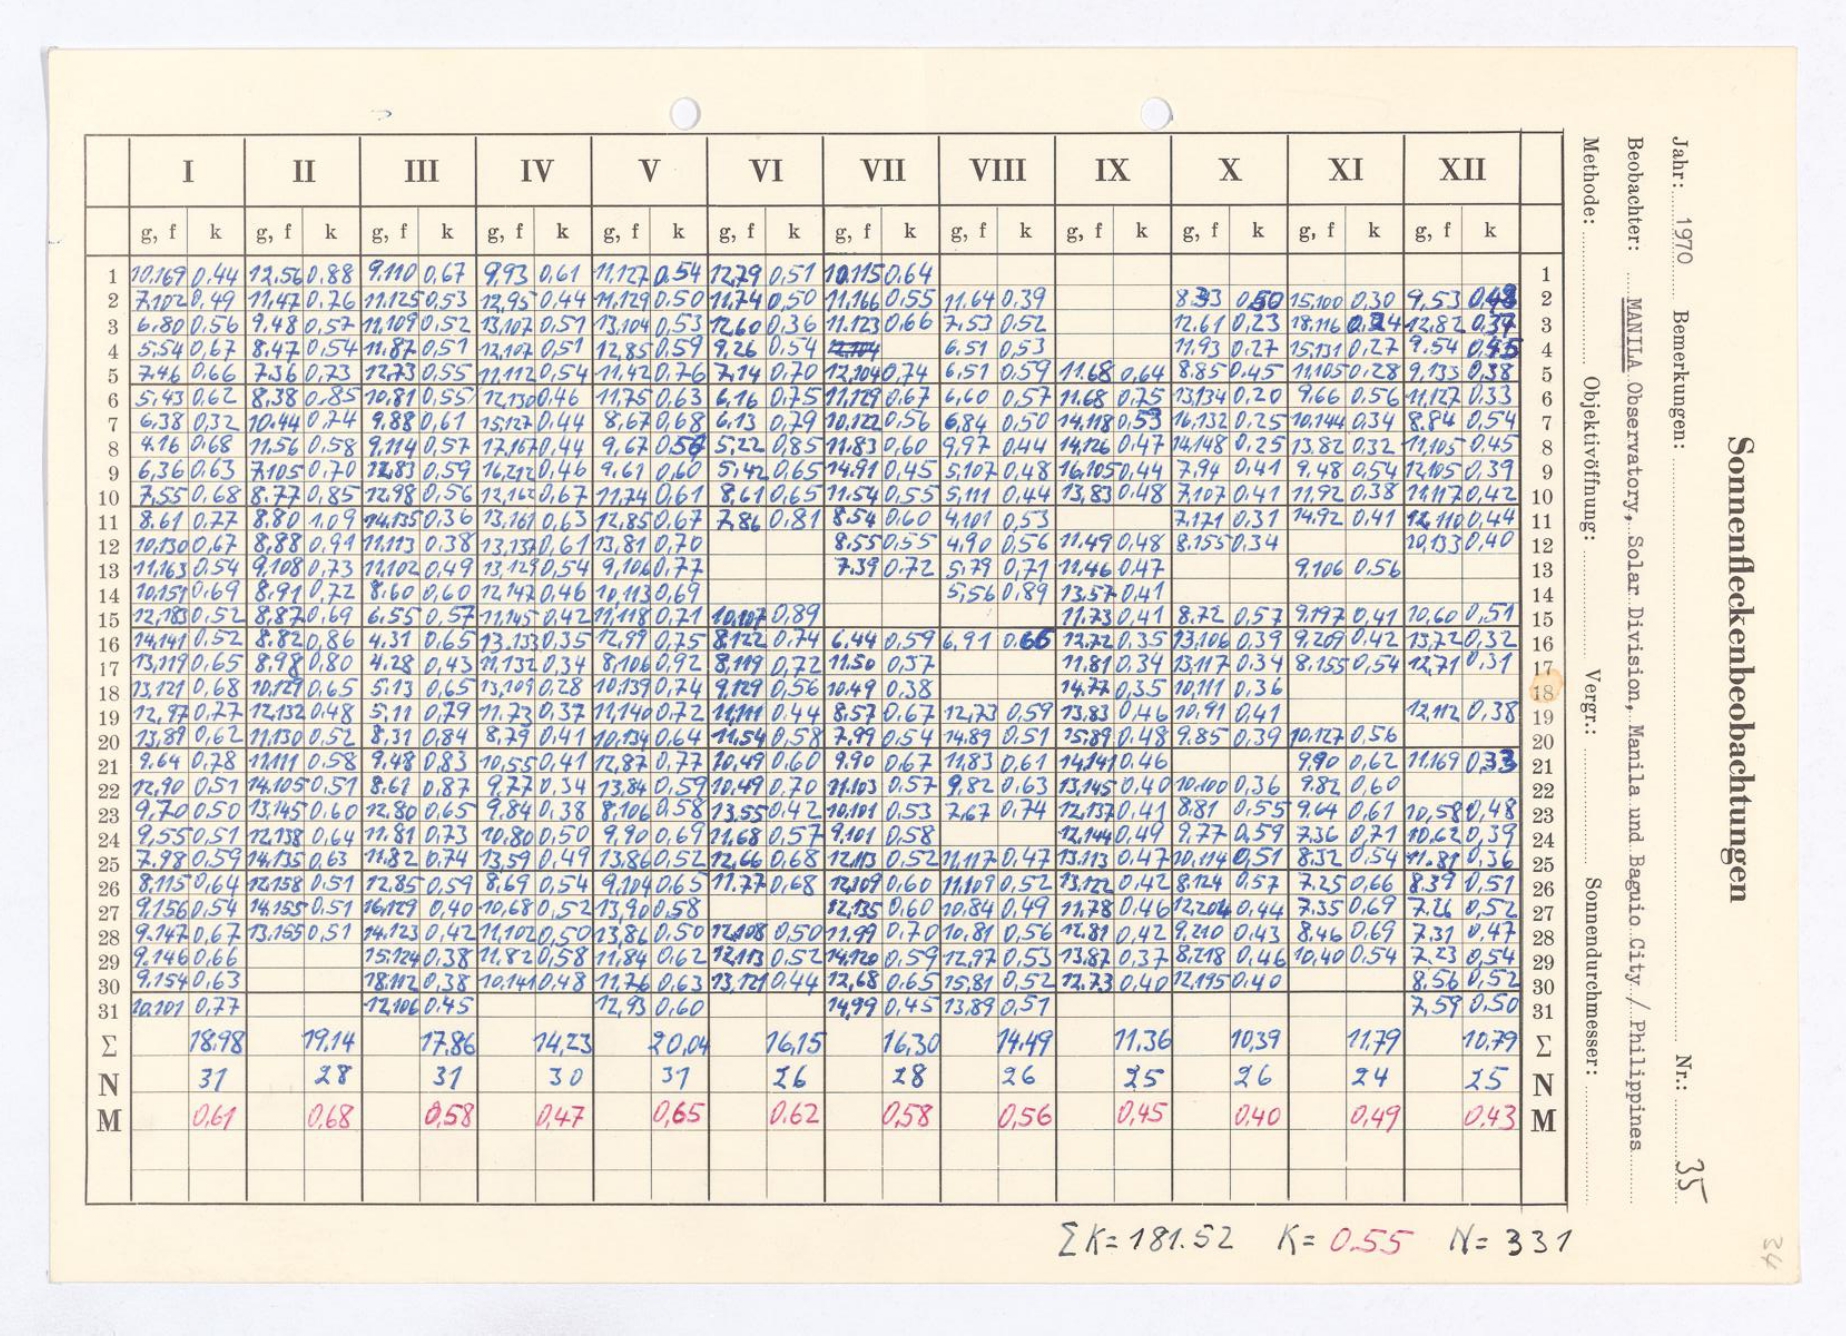 Sonnenfleckenbeobachtungen
Jahr: 1970 Bemerkungen: Nr.: 35
Beobachter: MANILA Observatory, Solar Division, Manila und Baguio City / Philippines
Methode: Objektivöffnung: Vergr.: Sonnendurchmesser:
I II III IV V VI VII VIII IX X XI XII
g, f k g, f k g, f k g, f k g, f k g, f k g, f k g, f k g, f k g, f k g, f k g, f k
1 10,169 0,44 12,56 0,88 9,110 0,67 9,93 0,61 11,127 0,54 12,79 0,51 10,115 0,64 1
2 7,102 0,49 11,47 0,76 11,125 0,53 12,95 0,44 11,129 0,50 11,74 0,50 11,166 0,55 11,64 0,39 8,33 0,50 15,100 0,30 9,53 2
3 6,80 0,56 9,48 0,57 11,109 0,52 13,107 0,51 13,104 0,53 12,60 0,36 11,123 0,66 7,53 0,52 12,61 0,23 18,116 12,82 0,37 3
4 5,54 0,67 8,47 0,54 11,87 0,51 12,107 0,51 12,85 0,59 9,26 0,54 6,51 0,53 11,93 0,27 15,131 0,27 9,54 0,45 4
5 7,46 0,66 7,36 0,73 12,73 0,55 11,112 0,54 11,42 0,76 7,14 0,70 12,104 0,74 6,51 0,59 11,68 0,64 8,85 0,45 11,105 0,28 9,133 0,38 5
6 5,43 0,62 8,38 0,85 10,81 0,55 12,130 0,46 11,75 0,63 6,16 0,75 11,129 0,67 6,60 0,57 11,68 0,75 13,134 0,20 9,66 0,56 11,127 0,33 6
7 6,38 0,32 10,44 0,74 9,88 0,61 15,127 0,44 8,67 0,68 6,13 0,79 10,122 0,56 6,84 0,50 14,118 0,53 16,132 0,25 10,144 0,34 8,84 0,54 7
8 4,16 0,68 11,56 0,58 9,114 0,57 17,167 0,44 9,67 0,56 5,22 0,85 11,83 0,60 9,97 0,44 14,126 0,47 14,148 0,25 13,82 0,32 11,105 0,45 8
9 6,36 0,63 7,105 0,70 12,83 0,59 16,212 0,46 9,61 0,60 5,42 0,65 14,91 0,45 5,107 0,48 16,105 0,44 7,94 0,41 9,48 0,54 12,105 0,39 9
10 7,55 0,68 8,77 0,85 12,98 0,56 12,162 0,67 11,74 0,61 8,61 0,65 11,54 0,55 5,111 0,44 13,83 0,48 7,107 0,41 11,92 0,38 11,117 0,42 10
11 8,61 0,77 8,80 1,09 14,135 0,36 13,161 0,63 12,85 0,67 7,86 0,81 8,54 0,60 4,101 0,53 7,171 0,31 14,92 0,41 12,110 0,44 11
12 10,130 0,67 8,88 0,91 11,113 0,38 13,137 0,61 13,81 0,70 8,55 0,55 4,90 0,56 11,49 0,48 8,155 0,34 10,133 0,40 12
13 11,163 0,54 9,108 0,73 11,102 0,49 13,129 0,54 9,106 0,77 7,39 0,72 5,79 0,71 11,46 0,47 9,106 0,56 13
14 10,151 0,69 8,91 0,72 8,60 0,60 12,147 0,46 10,113 0,69 5,56 0,89 13,57 0,41 14
15 12,183 0,52 8,87 0,69 6,55 0,57 11,145 0,42 11,118 0,71 10,107 0,89 11,73 0,41 8,72 0,57 9,197 0,41 10,60 0,51 15
16 14,141 0,52 8,82 0,86 4,31 0,65 13,133 0,35 12,99 0,75 8,122 0,74 6,44 0,59 6,91 0,66 12,72 0,35 13,106 0,39 9,209 0,42 13,72 0,32 16
17 13,119 0,65 8,98 0,80 4,28 0,43 11,132 0,34 8,106 0,92 8,119 0,72 11,50 0,37 11,81 0,34 13,117 0,34 8,155 0,54 12,71 0,31 17
18 13,121 0,68 10,129 0,65 5,13 0,65 13,109 0,28 10,139 0,74 9,129 0,56 10,49 0,38 14,77 0,35 10,111 0,36 18
19 12,97 0,77 12,132 0,48 5,11 0,79 11,73 0,37 11,140 0,72 11,111 0,44 8,57 0,67 12,73 0,59 13,83 0,46 10,91 0,41 12,112 0,38 19
20 13,89 0,62 11,130 0,52 8,31 0,84 8,79 0,41 10,134 0,64 11,54 0,58 7,99 0,54 14,89 0,51 15,89 0,48 9,85 0,39 10,127 0,56 20
21 9,64 0,78 11,111 0,58 9,48 0,83 10,55 0,41 12,87 0,77 10,49 0,60 9,90 0,67 11,83 0,61 14,141 0,46 9,90 0,62 11,169 0,33 21
22 12,90 0,51 14,105 0,51 8,61 0,87 9,77 0,34 13,84 0,59 10,49 0,70 11,103 0,57 9,82 0,63 13,145 0,40 10,100 0,36 9,82 0,60 22
23 9,70 0,50 13,145 0,60 12,80 0,65 9,84 0,38 8,106 0,58 13,55 0,42 10,101 0,53 7,67 0,74 12,137 0,41 8,81 0,55 9,64 0,61 10,58 0,48 23
24 9,55 0,51 12,138 0,64 11,81 0,73 10,80 0,50 9,90 0,69 11,68 0,57 9,101 0,58 12,144 0,49 9,77 0,59 7,36 0,71 10,62 0,39 24
25 7,98 0,59 14,135 0,63 11,82 0,74 13,59 0,49 13,86 0,52 12,66 0,68 12,113 0,52 11,117 0,47 13,113 0,47 10,114 0,51 8,32 0,54 11,81 0,36 25
26 8,115 0,64 12,158 0,51 12,85 0,59 8,69 0,54 9,104 0,65 11,77 0,68 12,109 0,60 11,109 0,52 13,122 0,42 8,124 0,57 7,25 0,66 8,39 0,51 26
27 9,156 0,54 14,155 0,51 16,129 0,40 10,68 0,52 13,90 0,58 12,135 0,60 10,84 0,49 11,78 0,46 12,204 0,44 7,35 0,69 7,26 0,52 27
28 9,147 0,67 13,155 0,51 14,123 0,42 11,102 0,50 13,86 0,50 12,108 0,50 11,99 0,70 10,81 0,56 12,81 0,42 9,210 0,43 8,46 0,69 7,31 0,47 28
29 9,146 0,66 15,124 0,38 11,82 0,58 11,84 0,62 12,113 0,52 14,120 0,59 12,97 0,53 13,87 0,37 8,218 0,46 10,40 0,54 7,23 0,54 29
30 9,154 0,63 18,112 0,38 10,141 0,48 11,76 0,63 13,121 0,44 12,68 0,65 15,81 0,52 12,73 0,40 12,195 0,40 8,56 0,52 30
31 10,101 0,77 12,106 0,45 12,93 0,60 14,99 0,45 13,89 0,51 7,59 0,50 31
Σ 18,98 19,14 17,86 14,23 20,04 16,15 16,30 14,49 11,36 10,39 11,79 10,79 Σ
N 31 28 31 30 31 26 28 26 25 26 24 25 N
M 0,61 0,68 0,58 0,47 0,65 0,62 0,58 0,56 0,45 0,40 0,49 0,43 M
ΣK = 181.52 K = 0.55 N = 331
34